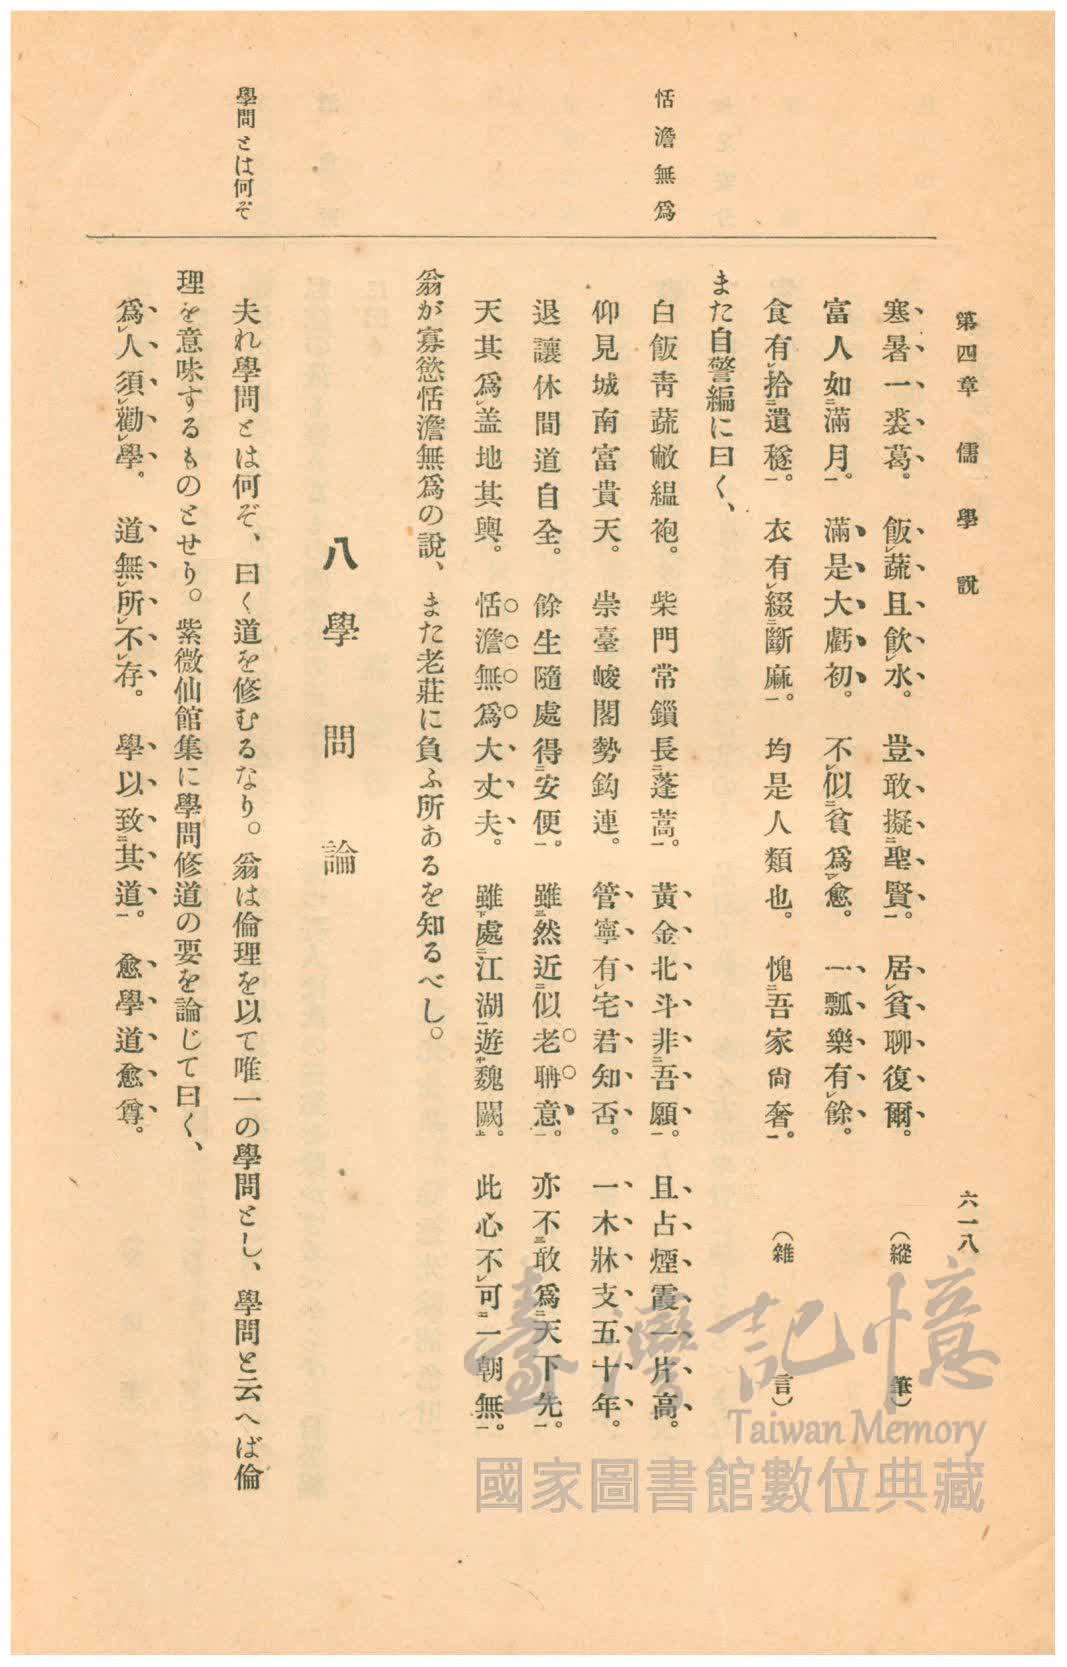 第四章　儒學說
六一八
寒暑一裘葛。飯レ蔬且飲レ水。豈敢擬二聖賢一。居レ貧聊復爾。（縱筆）
富人如二滿月一。滿是大虧初。不レ似二貧爲一レ愈。一瓢樂有レ餘。
食有レ拾二遺穟一。衣有レ綴二斷麻一。均是人類也。愧二吾家尙奢一。（雜言）
また自警編に曰く、
恬澹無爲
白飯靑蔬敝縕袍。柴門常鎖長二蓬蒿一。黃金北斗非二吾願一。且占煙霞一片高。
仰見城南富貴天。崇臺峻閣勢鈎連。管寧有レ宅君知否。一木牀支五十年。
退讓休間道自全。餘生隨處得二安便一。雖三然近二似老聃意一。亦不三敢爲二天下先一。
天其爲レ盖地其輿。恬澹無爲大丈夫。雖下處二江湖一遊中魏闕上。此心不レ可二一朝無一。
翁が寡慾恬澹無爲の說、また老莊に負ふ所あるを知るべし。
八學問論
學問とは何ぞ
夫れ學問とは何ぞ、曰く道を修むるなり。翁は倫理を以て唯一の學問とし、學問と云へば倫
理を意味するものとせり。紫微仙館集に學問修道の要を論じて曰く、
爲レ人須レ勸レ學。道無レ所レ不レ存。學以致二其道一。愈學道愈尊。
臺灣記憶
Taiwan Memory
國家圖書館數位典藏